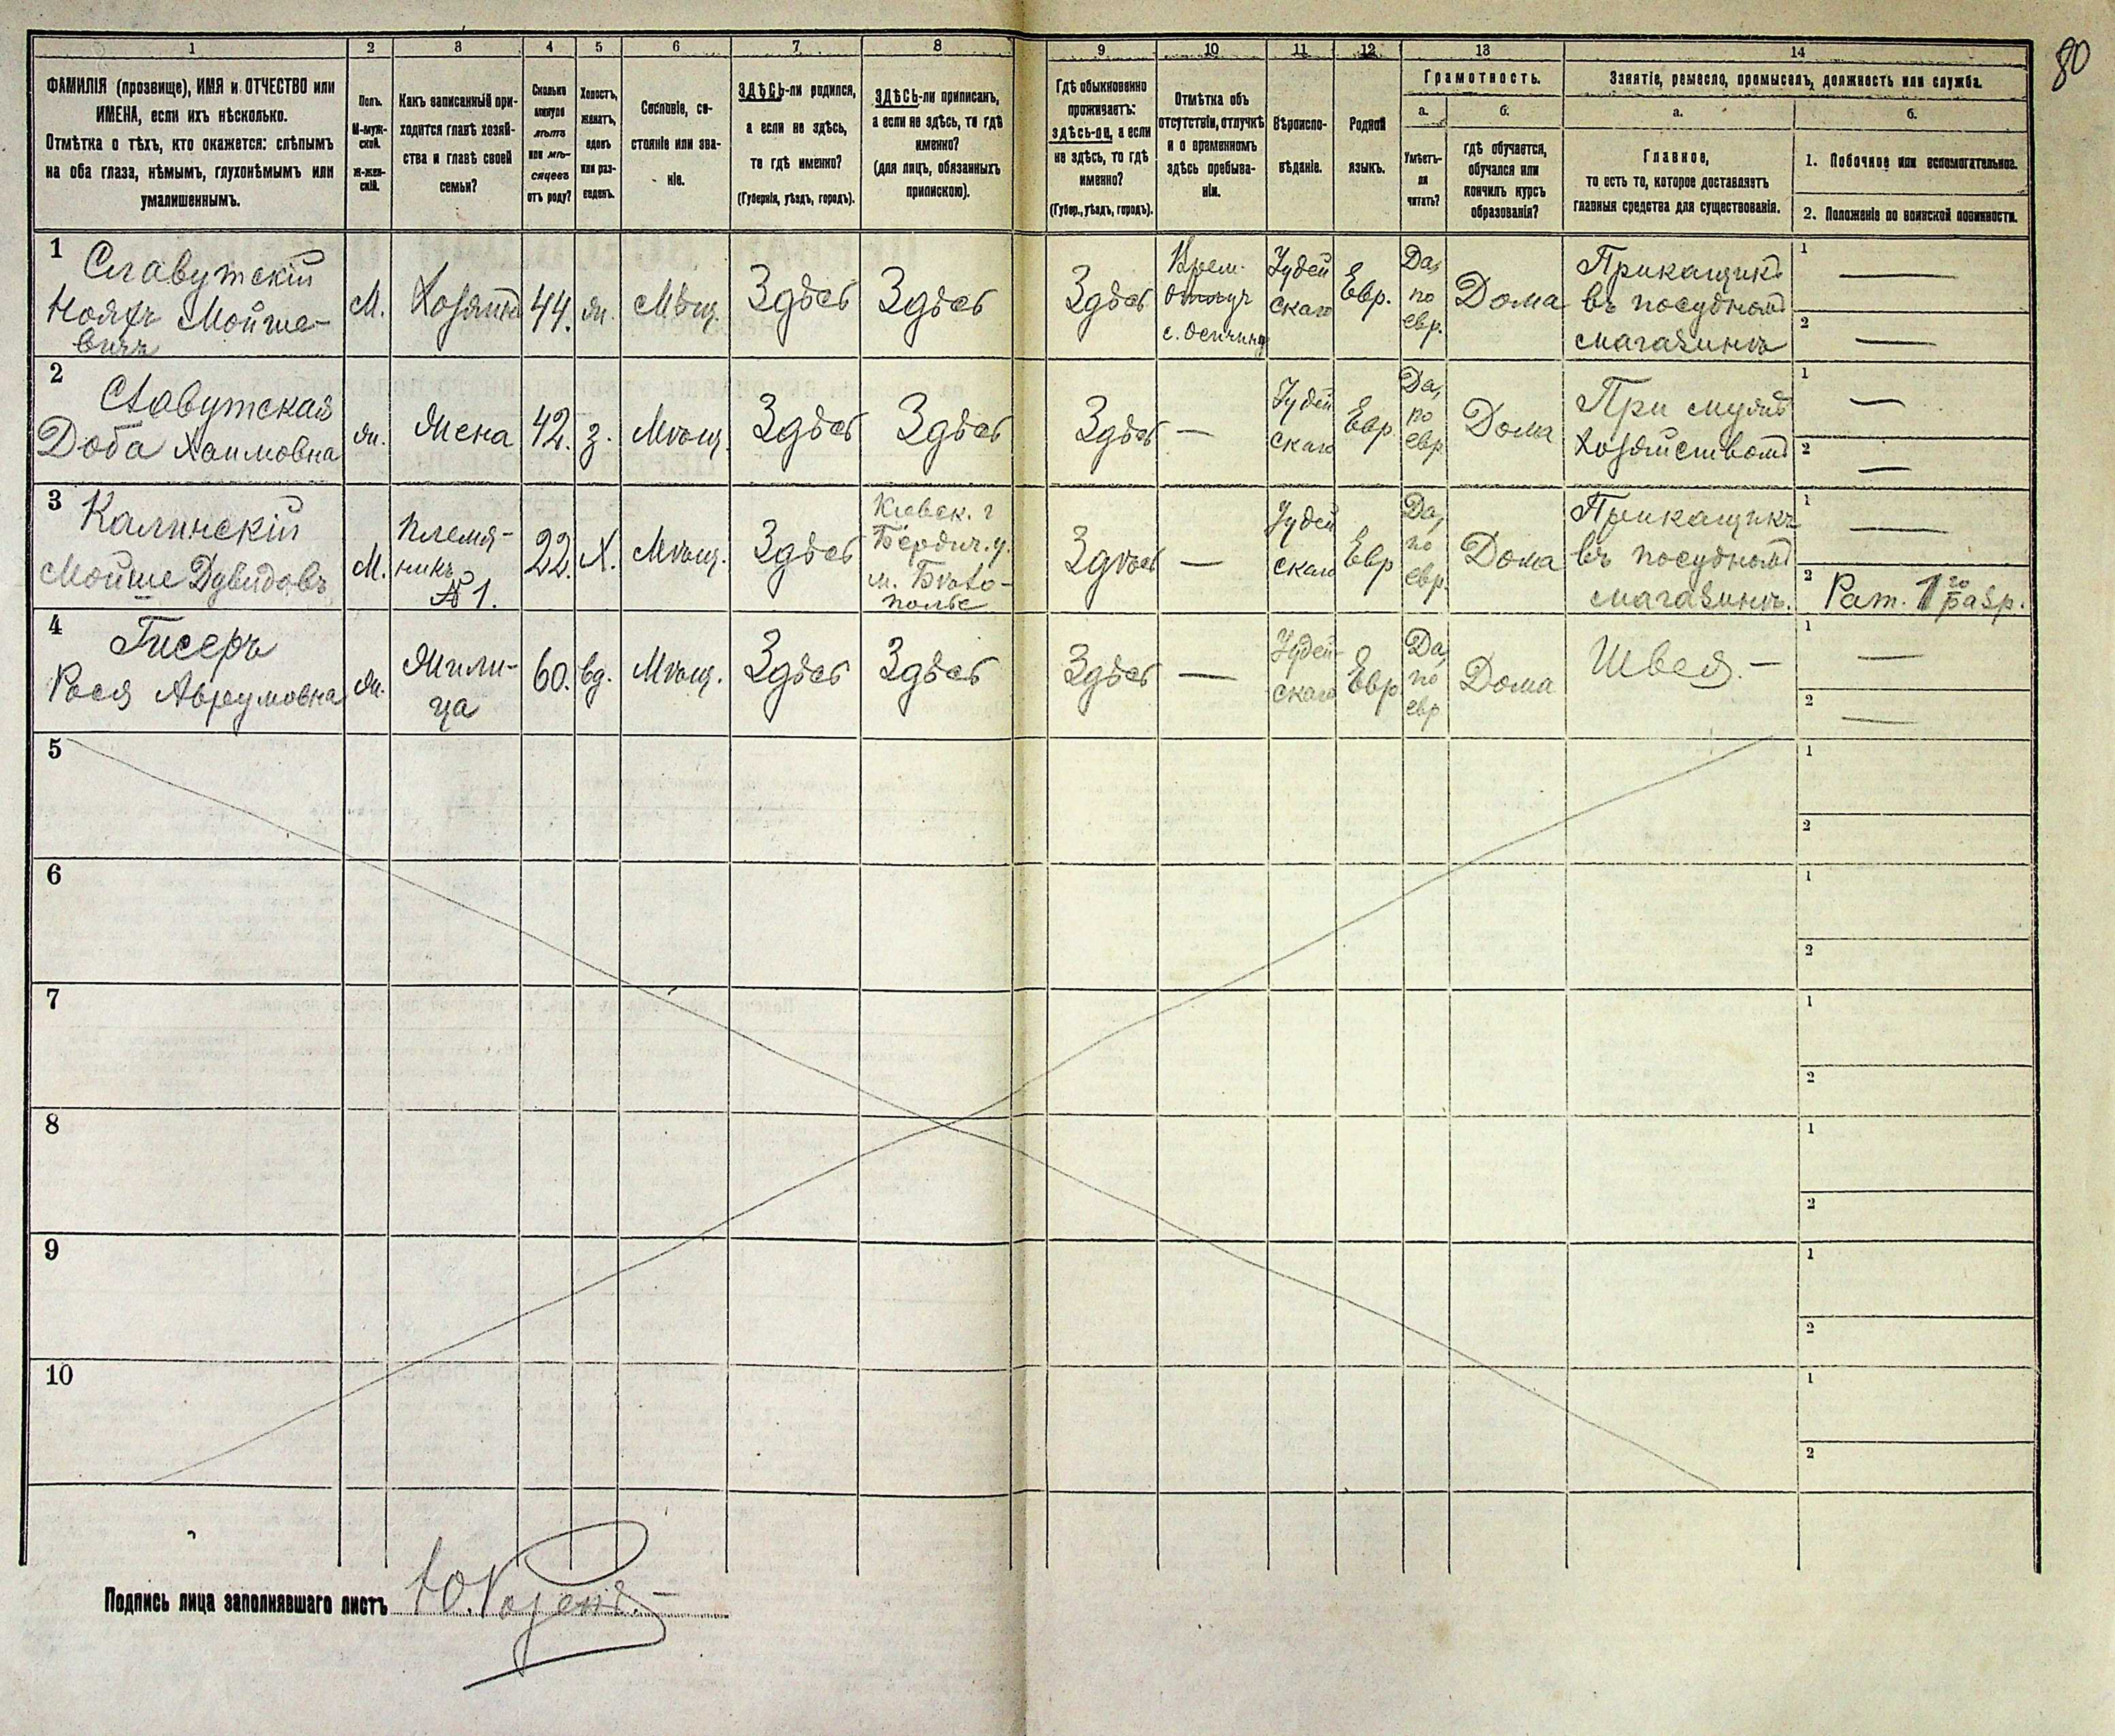 80
1 2 3 4 5 6 7 8 9 10 11 12 13 14
ФАМИЛІЯ (прозвище), ИМЯ и ОТЧЕСТВО или
ИМЕНА, если ихъ нѣсколько.
Отмѣтка о тѣхъ, кто окажется: слѣпымъ
на оба глаза, нѣмымъ, глухонѣмымъ или
умалишеннымъ.
Полъ.
М-муж-
ской.
Ж-жен-
скій.
Какъ записанный при-
ходится главѣ хозяй-
ства и главѣ своей
семьи?
Сколько
минуло
лѣтъ
или мѣ-
сяцевъ
отъ роду?
Холостъ,
женатъ,
вдовъ
или раз-
веденъ.
Сословіе, со-
стояніе или зва-
ніе.
ЗДѢСЬ-ли родился,
а если не здѣсь,
то гдѣ именно?
(Губернія, уѣздъ, городъ).
ЗДѢСЬ-ли приписанъ,
а если не здѣсь, то гдѣ
именно?
(для лицъ, обязанныхъ
припискою).
Гдѣ обыкновенно
проживаетъ:
здѣсь-ли, а если
не здѣсь, то гдѣ
именно?
(Губер., уѣздъ, городъ).
Отмѣтка объ
отсутствіи, отлучкѣ
и о временномъ
здѣсь пребыва-
ніи.
Вѣроиспо-
вѣданіе.
Родной
языкъ.
Грамотность.
а.
Умѣетъ-
ли
читать?
б.
гдѣ обучается,
обучался или
кончилъ курсъ
образованія?
Занятіе, ремесло, промыселъ, должность или служба.
а.
Главное,
то есть то, которое доставляетъ
главныя средства для существованія.
б.
1. Побочное или вспомогательное.
2. Положеніе по воинской повинности.
1
Славутскій
Нояхъ Мойше-
вичъ
М.
Хозяинъ
44.
ж.
Мѣщ.
Здѣсь
Здѣсь
Здѣсь
Врем.
отлуч
Іудей
скаго
Евр.
Да,
по
евр.
Дома
Прикащикъ
въ посудномъ
магазинѣ
1 —
2 —
2
Славутская
Доба Хаимовна
ж.
Жена
42.
з.
Мѣщ.
Здѣсь
Здѣсь
Здѣсь
—
Іудей
скаго
Евр.
Да,
по
евр.
Дома
При мужѣ
хозяйствомъ
1 —
2 —
3
Калинскій
Мойше Дувидовъ
М.
Племя-
никъ
№ 1.
22.
Х.
Мѣщ.
Здѣсь
Кіевск. г
Бердич. у.
м. Бѣло-
полье
Здѣсь
—
Іудей
скаго
Евр
Да,
по
евр.
Дома
Прикащикъ
въ посудномъ
магазинѣ.
1 —
2 Рат. 1го разр.
4
Гисеръ
Рося Аврумовна
ж.
Жили-
ца
60.
вд.
Мѣщ.
Здѣсь
Здѣсь
Здѣсь
—
Іудей-
скаго
Евр
Да,
по
евр
Дома
Швея. —
1 —
2 —
5
1
2
6
1
2
7
1
2
8
1
2
9
1
2
10
1
2
Подпись лица заполнявшаго листъ